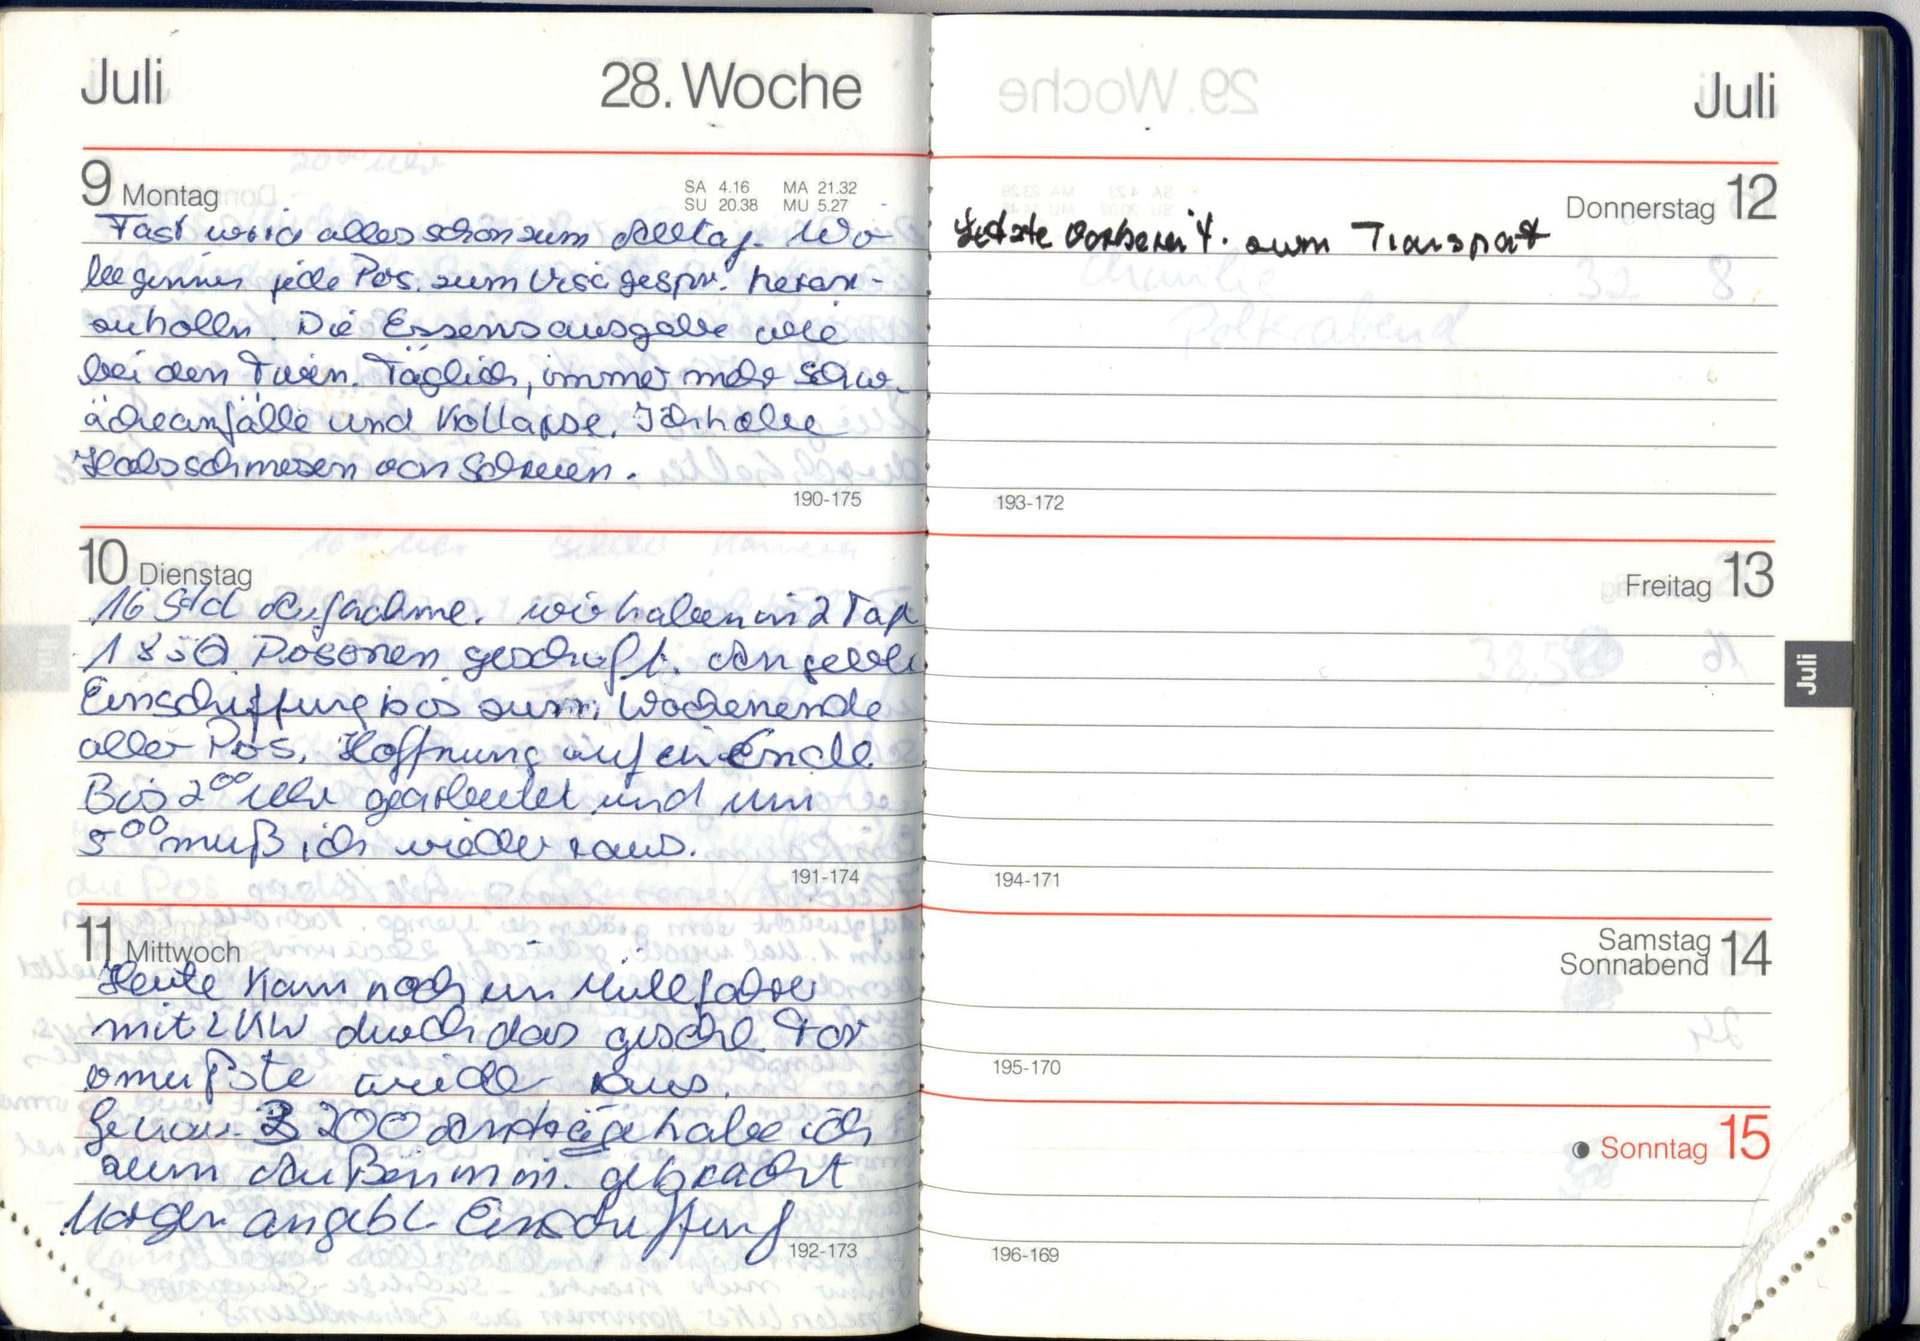 Juli
28. Woche
9 Montag
SA 4.16 MA 21.32
SU 20.38 MU 5.27
Fast wird alles schon zum Alltag. Wo
beginnen jede Pers. zum gespr. heran-
zuholen. Die Essensausgabe wie
bei den Tieren. Täglich, immer mehr Schw-
ächeanfälle und Kollapse. Ich habe
Halsschmerzen von Schreien.
190-175
10 Dienstag
16 Std Aufnahme. wir haben in 2 Tag
1850 Personen geschafft. Angebl.
Einschiffung bis zum Wochenende
aller Pers. Hoffnung auf ein Ende
Bis 2⁰⁰ Uhr gearbeitet und um
5⁰⁰ muß ich wieder raus.
191-174
11 Mittwoch
Heute kam noch ein Müllfahrer
mit LKW durch das geschl. Tor
mußte wieder raus.
Genau 3200 Anträge habe ich
zum Außenmin. gebracht
Morgen angebl. Einschiffung
192-173
Juli
Donnerstag 12
Letzte Vorbereit. zum Transport
193-172
Freitag 13
194-171
Juli
Samstag
Sonnabend 14
195-170
Sonntag 15
196-169